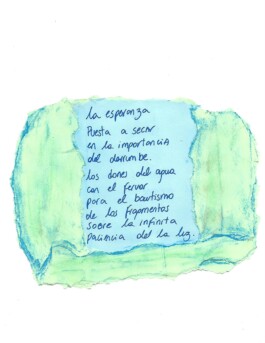 La esperanza
Puesta a secar
en la importancia
del derrumbe.
Los dones del agua
con el fervor
para el bautismo
de los fragmentos
sobre la infinita
paciencia de la luz.